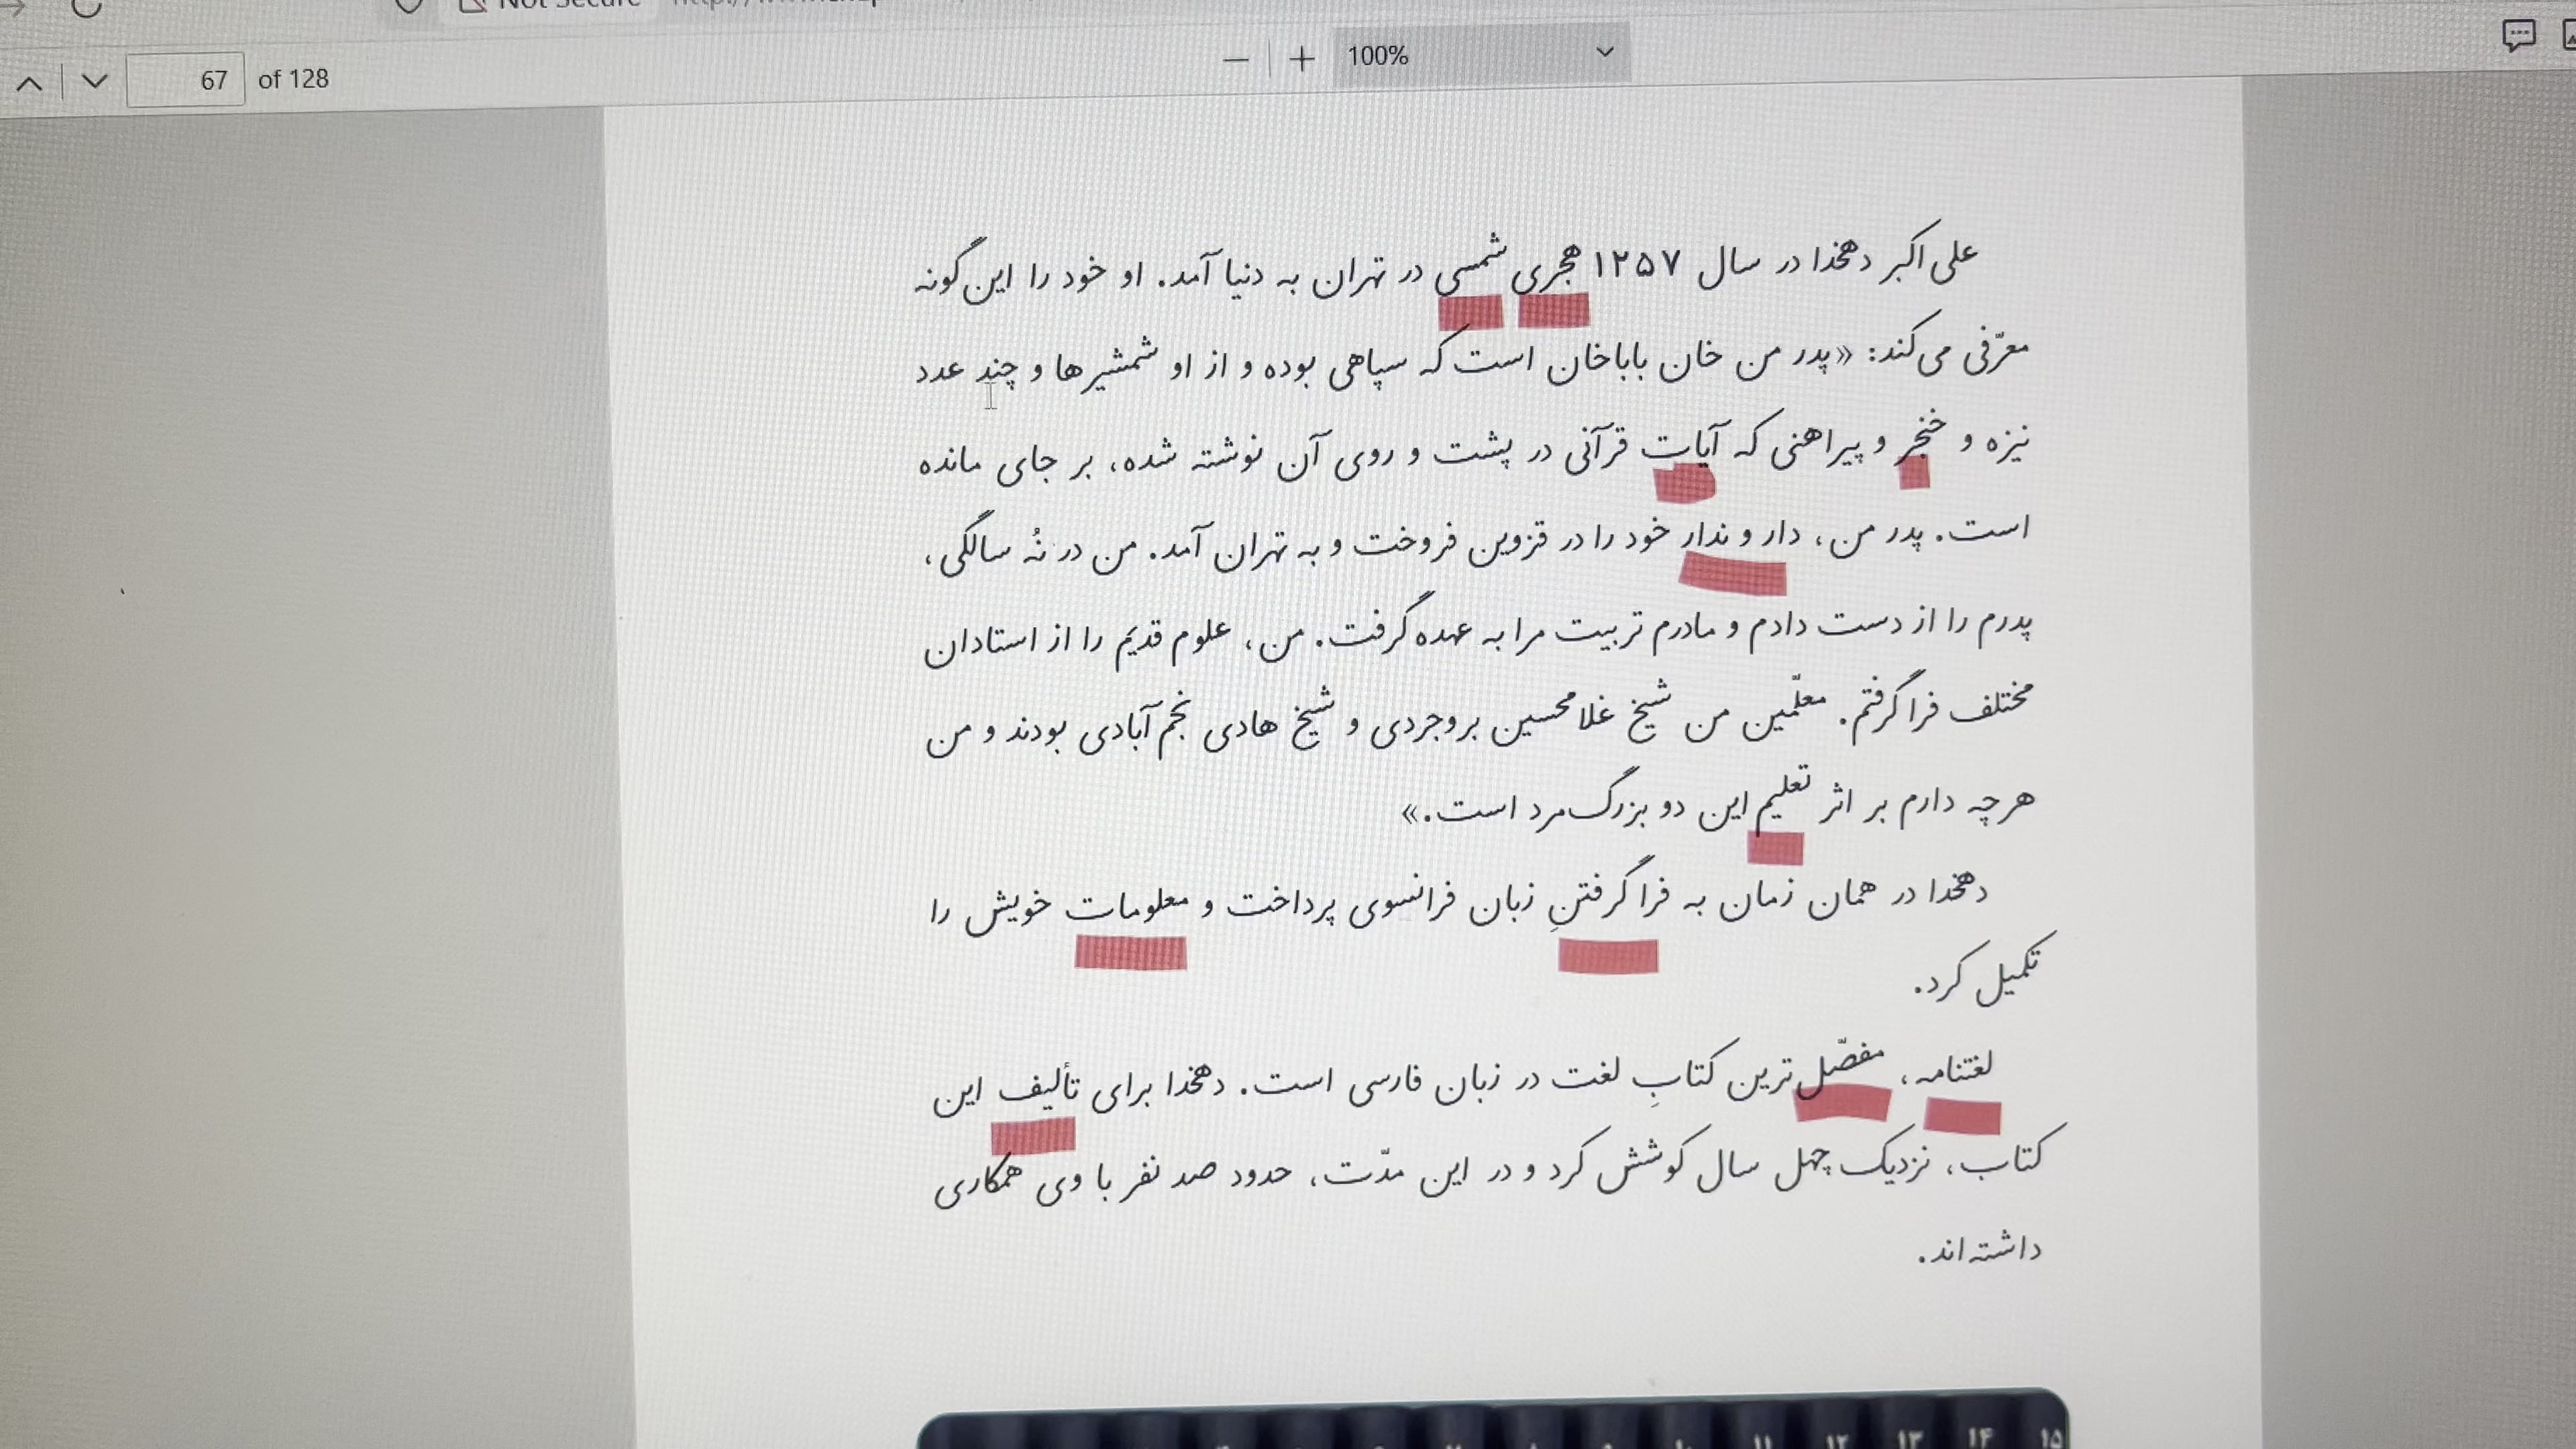 Not Secure
67 of 128
100%
علی اکبر دهخدا در سال ۱۲۵۷ هجری شمسی در تهران به دنیا آمد. او خود را این گونه
معرّفی می‌کند: «پدر من خان باباخان است که سپاهی بوده و از او شمشیرها و چند عدد
نیزه و خنجر و پیراهنی که آیات قرآنی در پشت و روی آن نوشته شده، بر جای مانده
است. پدر من، دار و ندار خود را در قزوین فروخت و به تهران آمد. من در نُه سالگی،
پدرم را از دست دادم و مادرم تربیت مرا به عهده گرفت. من، علوم قدیم را از استادان
مختلف فرا گرفتم. معلّمین من شیخ غلامحسین بروجردی و شیخ هادی نجم آبادی بودند و من
هر چه دارم بر اثر تعلیم این دو بزرگ مرد است.»
دهخدا در همان زمان به فرا گرفتنِ زبان فرانسوی پرداخت و معلومات خویش را
تکمیل کرد.
لغتنامه، مفصّل ترین کتابِ لغت در زبان فارسی است. دهخدا برای تألیف این
کتاب، نزدیک چهل سال کوشش کرد و در این مدّت، حدود صد نفر با وی همکاری
داشته‌اند.
۱۱ ۱۲ ۱۳ ۱۴ ۱۵